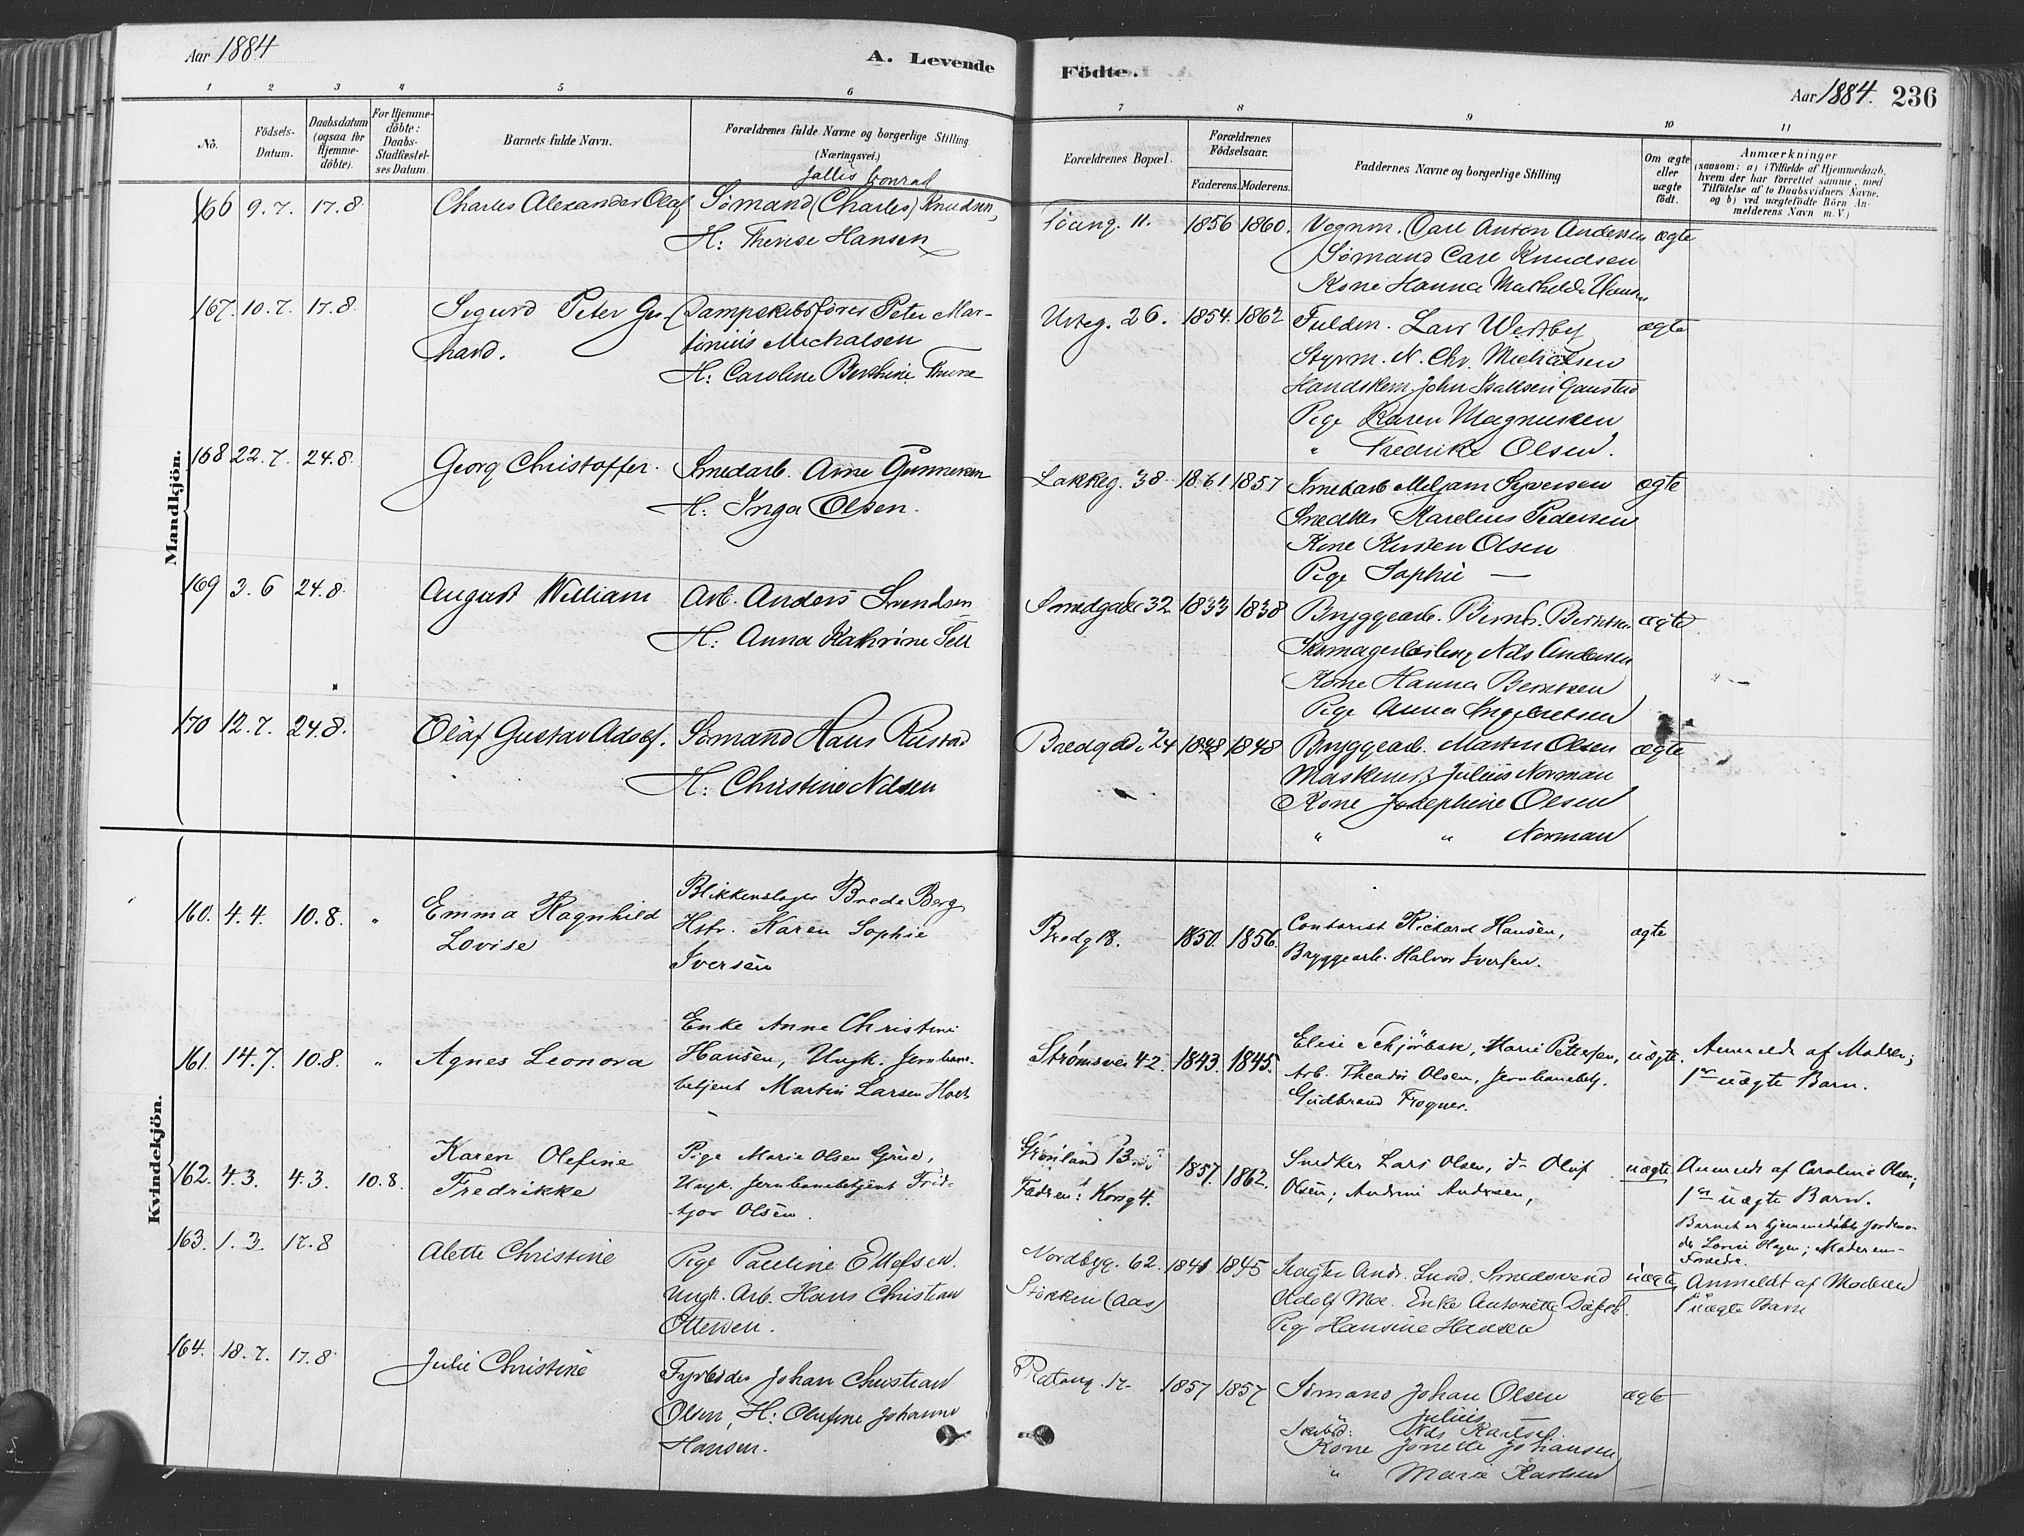 Aar 1884
A. Levende
Födte.
Aar 1884. 236
1 2 3 4 5 6 7 8 9 10 11
No.
Födsels-Datum.
Daabsdatum (ogsaa for Hjemme-döbte).
For Hjemme-döbte: Daabs-Stadfæstel-ses Datum.
Barnets fulde Navn.
Forældrenes fulde Navne og borgerlige Stilling (Næringsvei.)
Forældrenes Bopæl.
Forældrenes Födselsaar.
Faderens. Moderens.
Faddernes Navne og borgerlige Stilling
Om ægte eller uægte födt.
Anmærkninger
(saasom: a) i Tilfælde af Hjemmedaab, hvem der har forrettet samme, med Tilföielse af to Daabsvidners Navne, og b) ved uægtefödte Börn An-melderens Navn m. V.)
Mandkjön.
Conrad
166 9.7. 17.8. Charles Alexander Olaf Sømand (Charles) Knudsen, 11. 1856 1860. Vognm. Carl Anton Andersen ægte
H: Therese Hansen Sømand Carl Knudsen
Kone Hanna Mathilde Hansen
167. 10.7. 17.8. Sigurd Peter Ger- Dampskibsfører Peter Mar- Urteg. 26. 1854. 1862 Fuldm. Lars Westby ægte
hard. tinius Michalsen Styrm. N. Chr. Michalsen
H: Caroline Berthine Thune Handskem. John Isaksen Gaustad
Pige Karen Magnussen
" Fredrikke Olsen.
168 22.7. 24.8. Georg Christoffer. Smedarb. Arne Gunnersen Lakkeg. 38. 1861 1857 Smedarb Syversen ægte
H: Inga Olsen. Snedker Karelius Pedersen
Kone Kirsten Olsen
Pige Sophie —
169 3.6 24.8. August William Arb. Anders Svendsen Smedgade 32 1833 1838 Bryggearb. Bernh. Berntsen ægte
H: Anna Kathrine Nils Andersen
Kone Hanna Berntsen
Pige Anna Ingebretsen
170 12.7. 24.8. Olaf Gustav Adolf. Sømand Hans Rustad Bredgade 24 1848 1848 Bryggearb. Martin Olsen ægte
H: Christine Nilsen Julius Norman
Kone Josephine Olsen
" " Norman
Kvindekjön.
160. 4.4. 10.8. " Emma Ragnhild Blikkenslager Brede Berg Bredg 18. 1850. 1856. Contorist Richard Hansen, ægte
Lovise Hstr. Karen Sophie Bryggearb. Halvor Iversen.
Iversen
161. 14.7. 10.8. " Agnes Leonora Enke Anne Christine Strømsvei 42. 1843. 1845. Elise Schjørbek, Marie Pettersen, uægte. Anmeldt af Moderen;
Hansen, Ungk. Jernbane- Arb. Theodor Olsen, Jernbanebetj. 1ste uægte Barn.
betjent Martin Larsen Gudbrand Frogner.
162. 4.3. 4.3. 10.8. Karen Olefine Pige Marie Olsen Grue, Grønland 13 1857. 1862. Snedker Lars Olsen, do Oluf uægte Anmeldt af Caroline Olsen;
Fredrikke Ungk. Jernbanebetjent Frid- Faderen: Korsg 4. Olsen; Andrine Andersen, 1ste uægte Barn.
tjov Olsen. Barnet er hjemmedøbt af Jordemo-
der Lovise Hagen; Moderen
163. 1.3. 17.8 Alette Christine Pige Pauline Ellefsen. Nordbyg. 62. 1841 1845 Andr. Lund, Smedsvend uægte Anmeldt af Moderen
Ungk. Arb. Hans Christian Stokken (Aas) Adolf Moe. Enke Antonette uægte Barn
Ottersen. Pige Hansine Hansen
164. 18.7. 17.8 Julie Christine Fyrbøder Johan Christian Platoug. 1857 1857 Sømand Johan Olsen ægte
Olsen, H: Olufine Johanne Julius
Hansen. Nils Karlsen
Kone Jonette Johansen
" Marie Karlsen